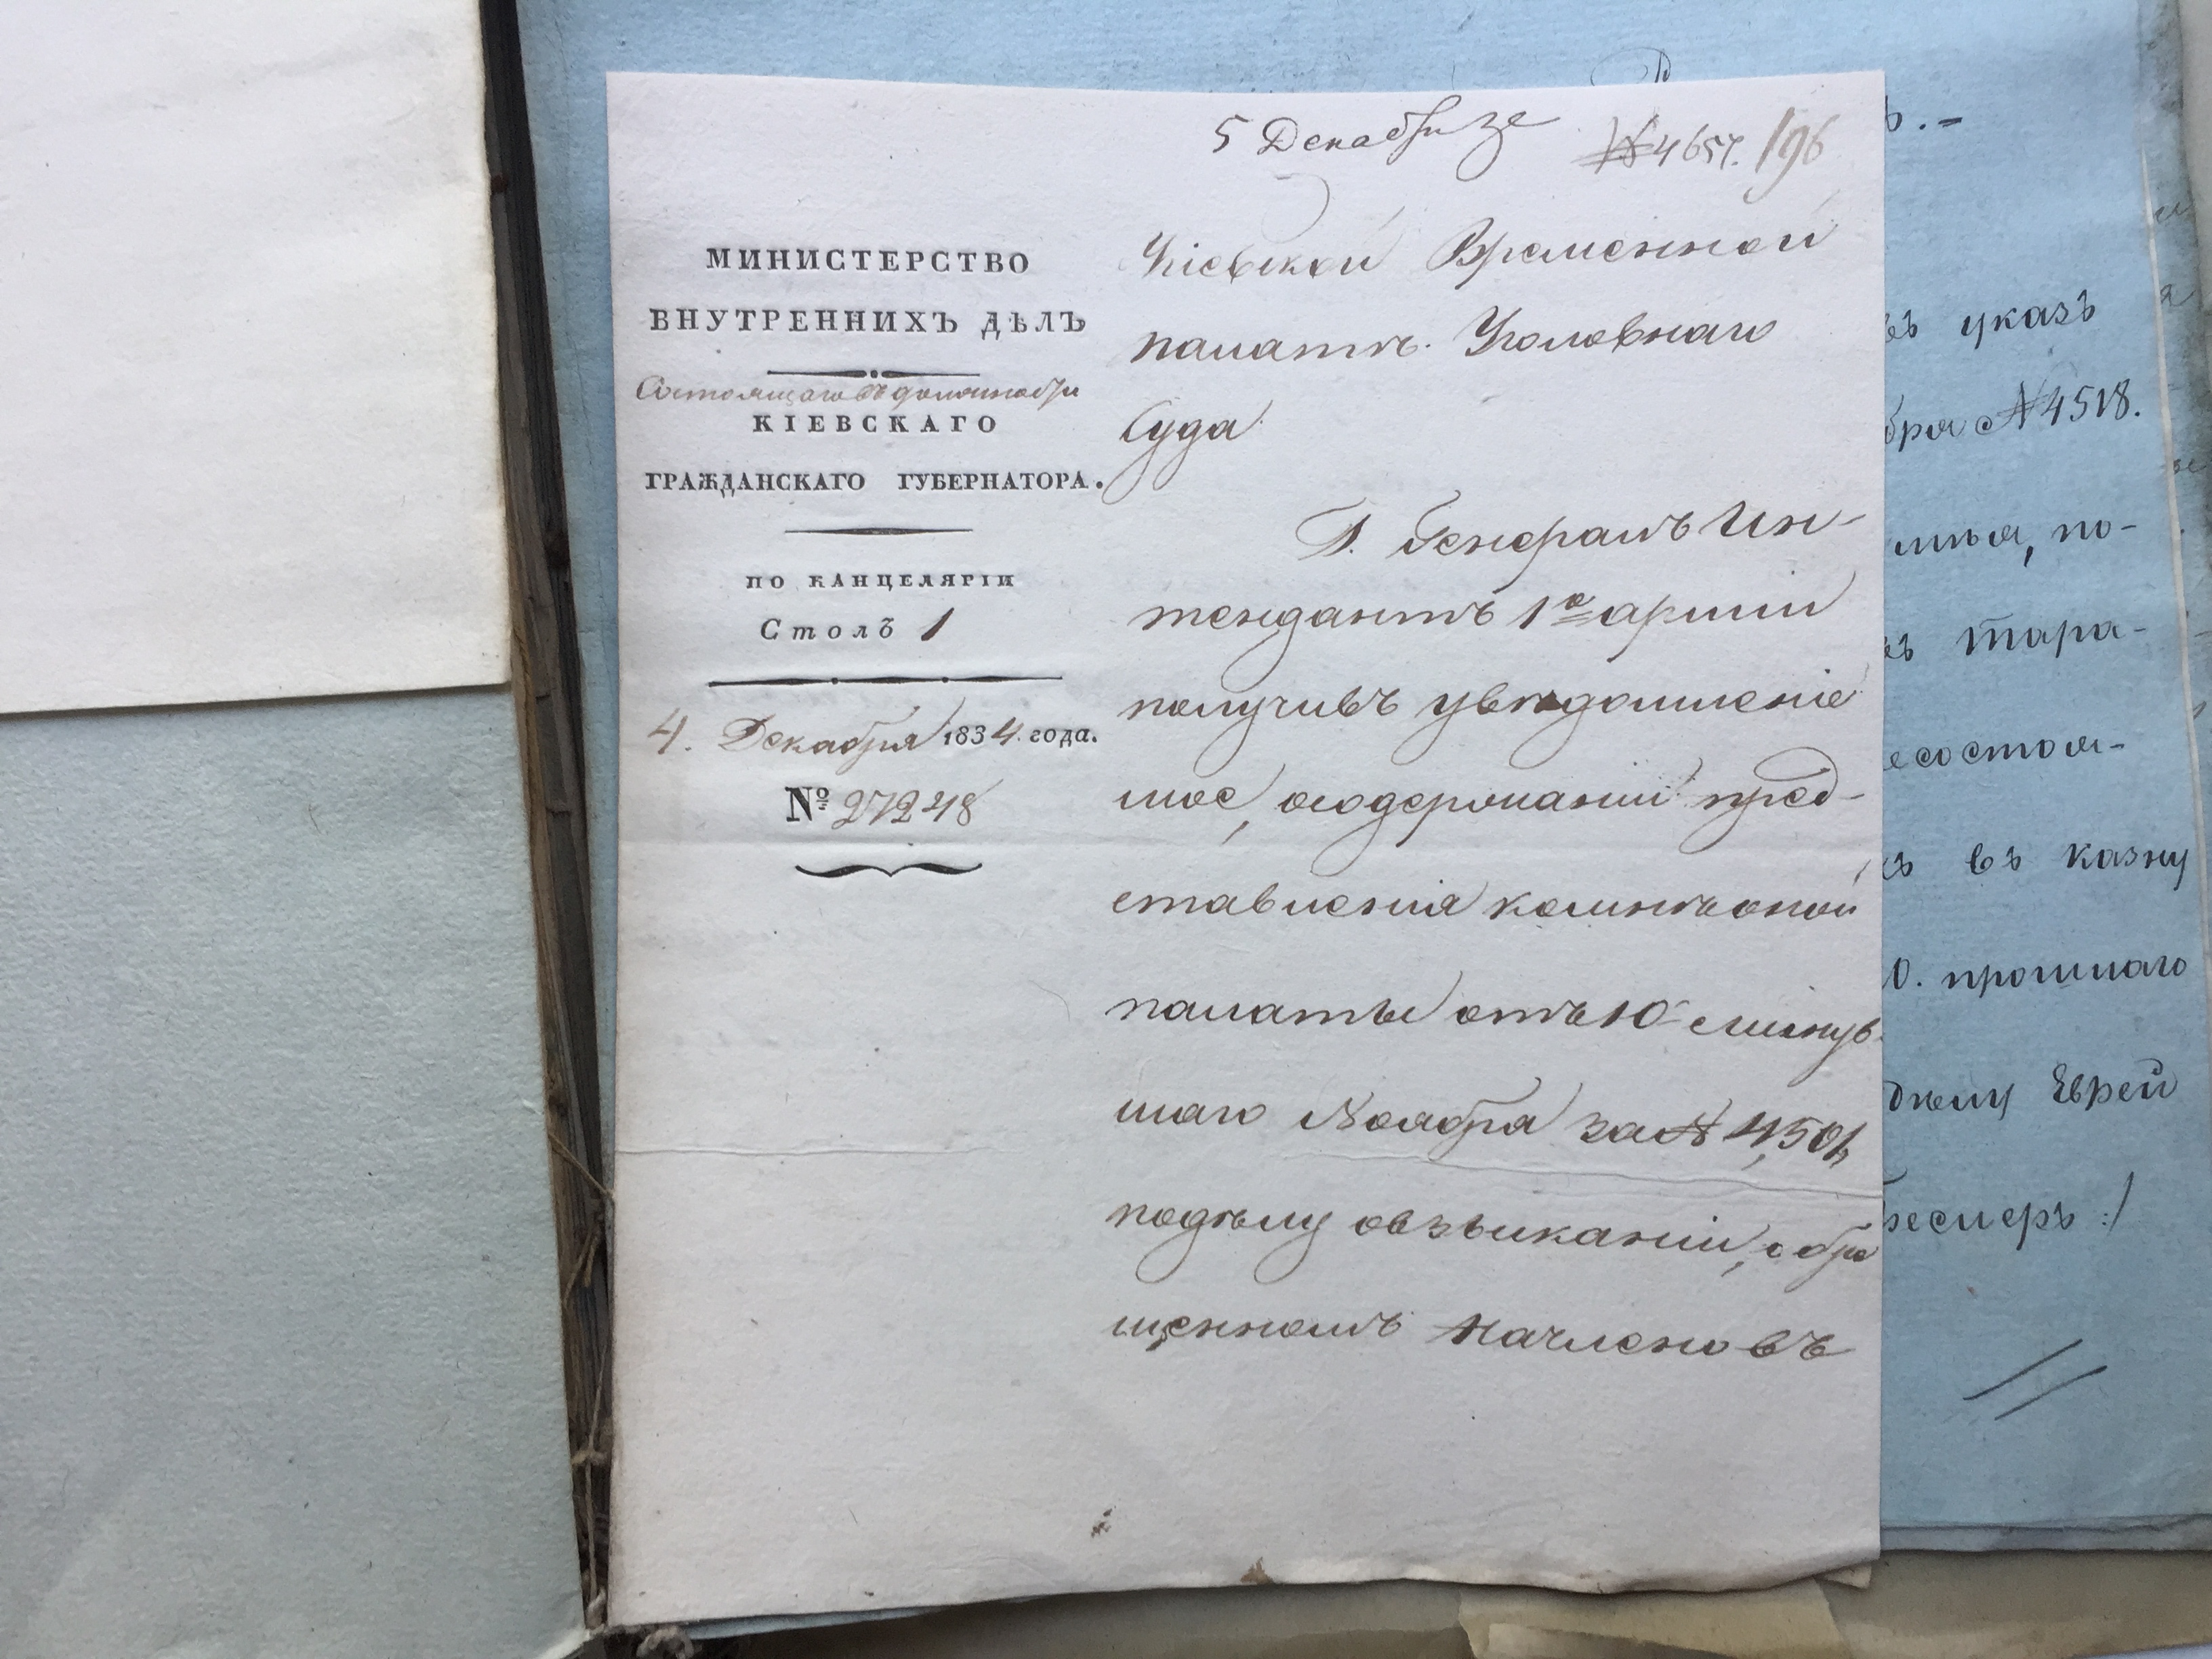 5 Декабря
№ 4657. 196
МИНИСТЕРСТВО
ВНУТРЕННИХЪ ДѢЛЪ
Состоящаго въ должности
КІЕВСКАГО
ГРАЖДАНСКАГО ГУБЕРНАТОРА.
ПО КАНЦЕЛЯРІИ
Столъ 1
4. Декабря 1834 года.
№ 27248
Кіевской Временной
палатѣ Уголовнаго
Суда
Г. Генералъ Ин-
тендантъ 1й арміи
получивъ увѣдомленіе
мое, о содержаніи пред-
ставленія ко мнѣ оной
палаты отъ 10 минув-
шаго Ноября за № 4,501,
по дѣлу о взысканіи, обра
щенномъ на членовъ
ъ.-
въ указъ
бря № 4518.
по-
Тара-
состоя-
въ казну
0. прошлаго
Еврей